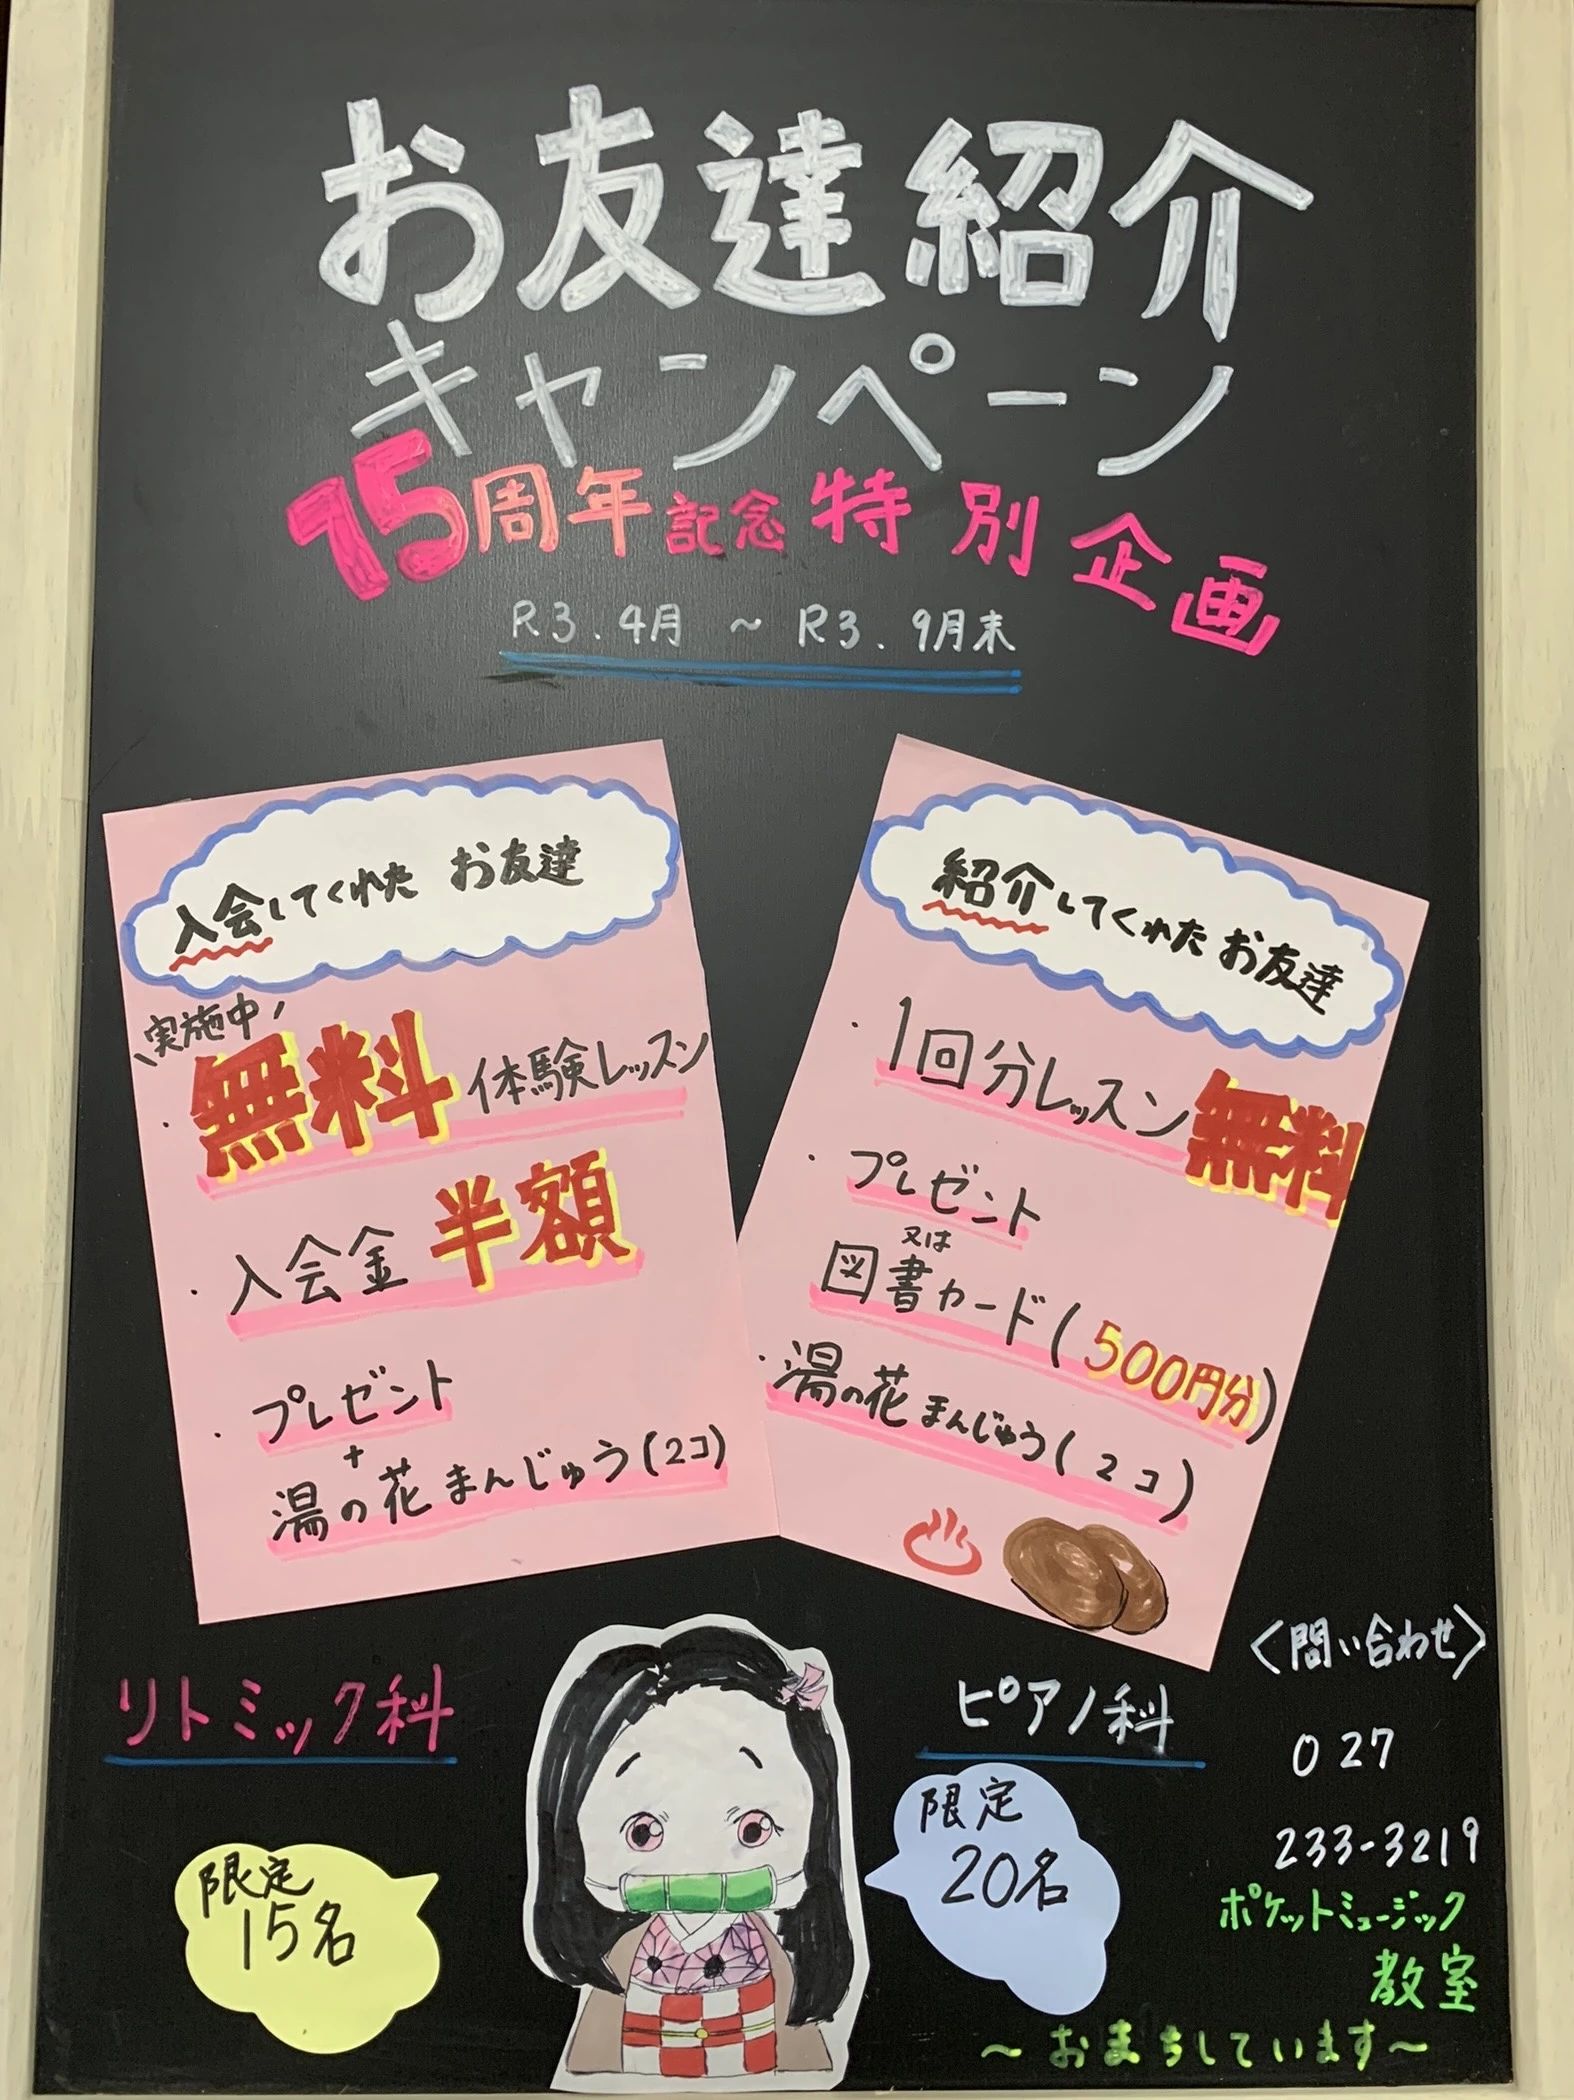 お友達紹介
キャンペーン
15周年記念特別企画
R3.4月 ～ R3.9月末
入会してくれた お友達
\実施中/
・無料体験レッスン
・入会金 半額
・プレゼント
+
湯の花まんじゅう(2コ)
紹介してくれた お友達
・1回分レッスン無料
・プレゼント
又は
図書カード(500円分)
・湯の花まんじゅう(2コ)
リトミック科
限定
15名
ピアノ科
限定
20名
〈問い合わせ〉
027
233-3219
ポケットミュージック
教室
～おまちしています～